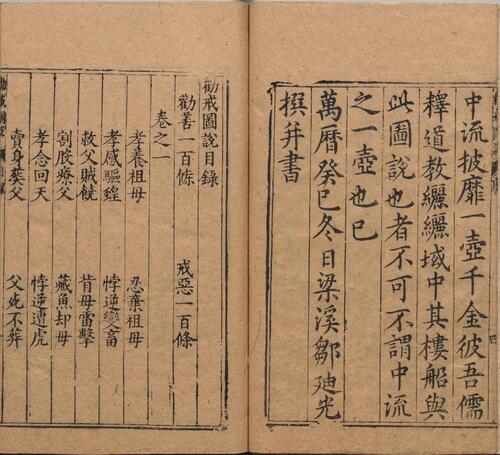 中流披靡一壺千金彼吾儒
釋道教纚纚域中其樓船與
此圖說也者不可不謂中流
之一壺也已
萬曆癸巳冬日梁溪鄒迪光
撰并書
勸戒圖說目錄
勸善一百條 戒惡一百條
卷之一
孝養祖母 忍棄祖母
孝感驅蝗 悖逆變畜
救父賊饒 背母雷擊
割股療父 藏魚却母
孝念回天 悖逆遭虎
賣身葬父 父屍不葬